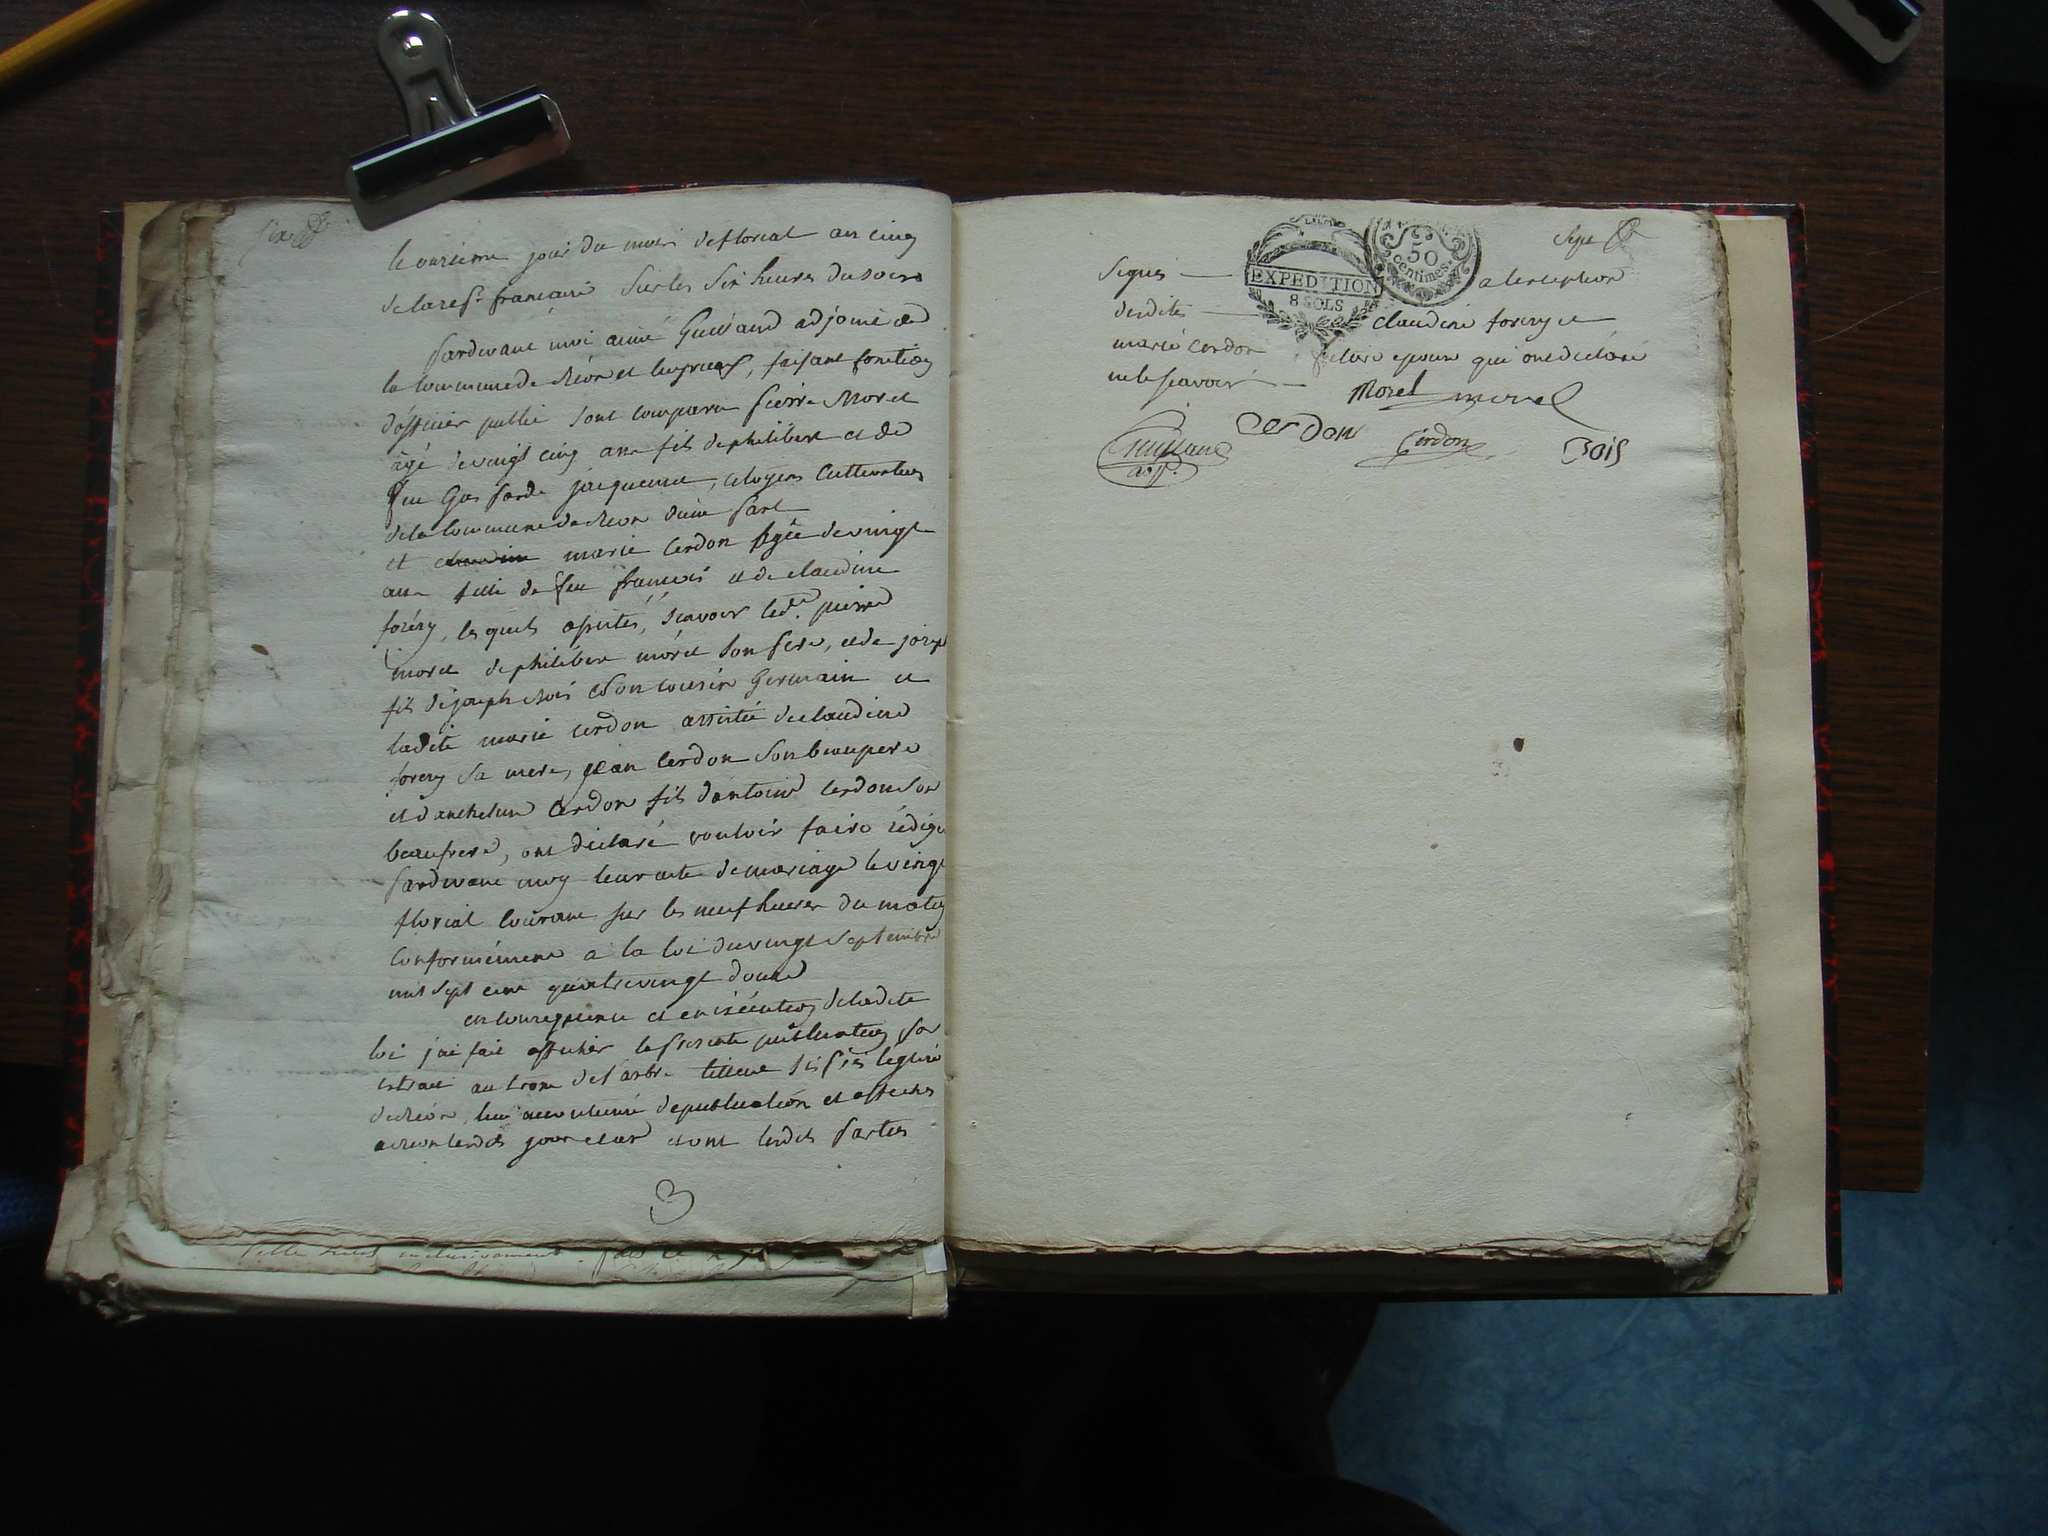 six
le onzieme jour du mois de floreal an cinq
de la rep.e francaise sur les six heures du soir
pardevant moi aimé Guillaud adjoint de
la commune de et leyrieu, faisant fonction
d'officier public sont comparu pierre Morel
âgé de vingt cinq ans fils de philibert et de
feu Gasparde jacquemet, citoyens cultivateur
de la commune de d'une part
et claudine marie Cerdon agée de vingt
ans fille de feu françois et de claudine
forény, lesquels assistés, sçavoir led. pierre
morel de philibert morel son pere, et de joseph
fils de joseph bois son cousin Germain et
ladite marie cerdon assistée de claudine
foreny sa mere, jean Cerdon son beaupere
et d'anthelme Cerdon fils d'antoine Cerdon son
beaufrere, ont déclaré vouloir faire rédiger
pardevant moy leur acte de mariage le vingt
florial courant sur les neuf heures du matin
conformément a la loi du vingt septembre
mil sept cent quatrevingt douze
en consequence et en exécution de ladite
loi j'ai fait afficher la presente publication par
extrait au tronc de l'arbre tilleul l'eglise
lieu accoutumé de publication et affiches
lesdits jour et an et ont lesdits parties
3
sept
50
centimes
EXPEDITION
8 SOLS
signés — a l'exception
desdites — claudine foreny et
marie cerdon future epouse qui ont déclaré
ne le sçavoir —
Morel morel
Guillaud cerdon Cerdon Bois
adj.